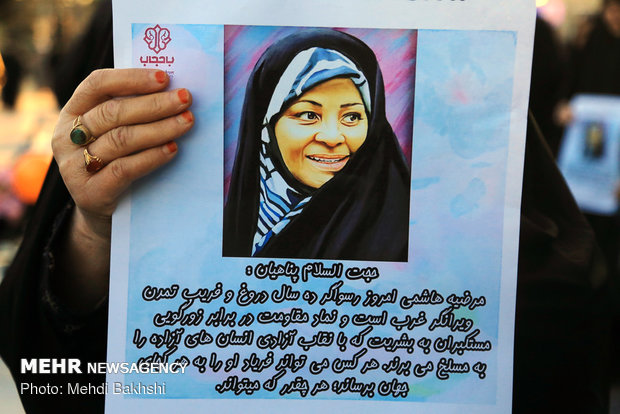 باحجاب
حجت السلام پناهیان :
مرضیه هاشمی امروز رسواگر ده سال دروغ و فریب تمدن
ویرانگر غرب است و نماد مقاومت در برابر زورگویی
مستکبران به بشریت که با نقاب آزادی انسان های آزاده را
به مسلخ می برند. هر کس می تواند فریاد او را به هر کجای
جهان برساند؛ هر چقدر که میتواند.
MEHR NEWSAGENCY
Photo: Mehdi Bakhshi